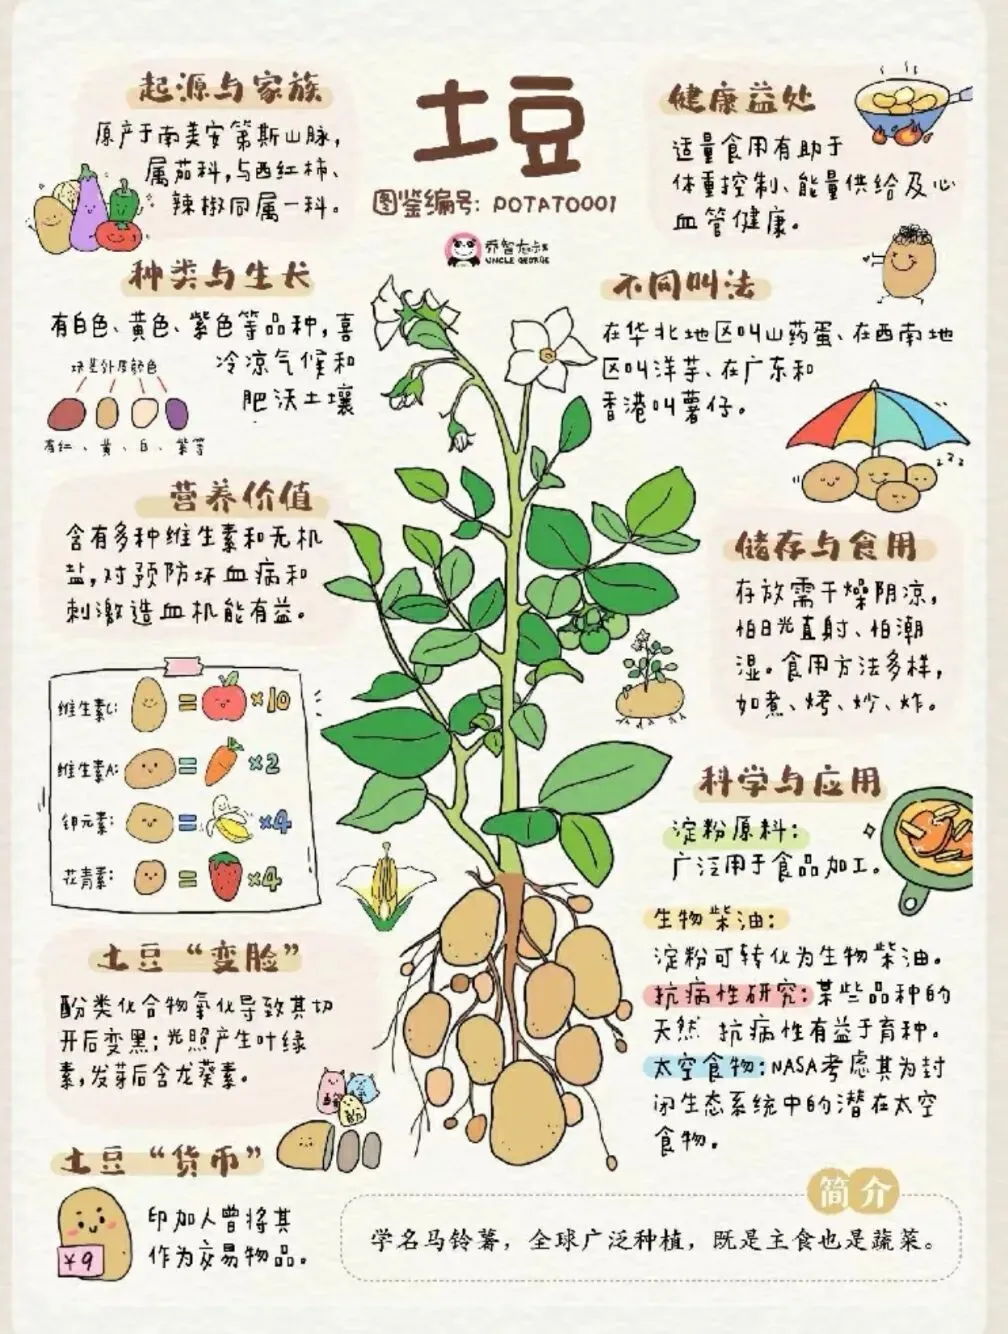 土豆
图鉴编号: POTATO001
乔智大叔
UNCLE GEORGE
起源与家族
原产于南美安第斯山脉,
属茄科,与西红柿、
辣椒同属一科。
种类与生长
有白色、黄色、紫色等品种,喜
冷凉气候和
肥沃土壤
块茎外层颜色
有红、黄、白、紫等
营养价值
含有多种维生素和无机
盐,对预防坏血病和
刺激造血机能有益。
维生素C: = ×10
维生素A: = ×2
钾元素: = ×4
花青素: = ×4
土豆“变脸”
酚类化合物氧化导致其切
开后变黑;光照产生叶绿
素,发芽后含龙葵素。
土豆“货币”
¥9
印加人曾将其
作为交易物品。
健康益处
适量食用有助于
体重控制、能量供给及心
血管健康。
不同叫法
在华北地区叫山药蛋、在西南地
区叫洋芋、在广东和
香港叫薯仔。
zzz
储存与食用
存放需干燥阴凉,
怕日光直射、怕潮
湿。食用方法多样,
如煮、烤、炒、炸。
科学与应用
淀粉原料:
广泛用于食品加工。
生物柴油:
淀粉可转化为生物柴油。
抗病性研究:某些品种的
天然 抗病性有益于育种。
太空食物:NASA考虑其为封
闭生态系统中的潜在太空
食物。
简介
学名马铃薯，全球广泛种植，既是主食也是蔬菜。